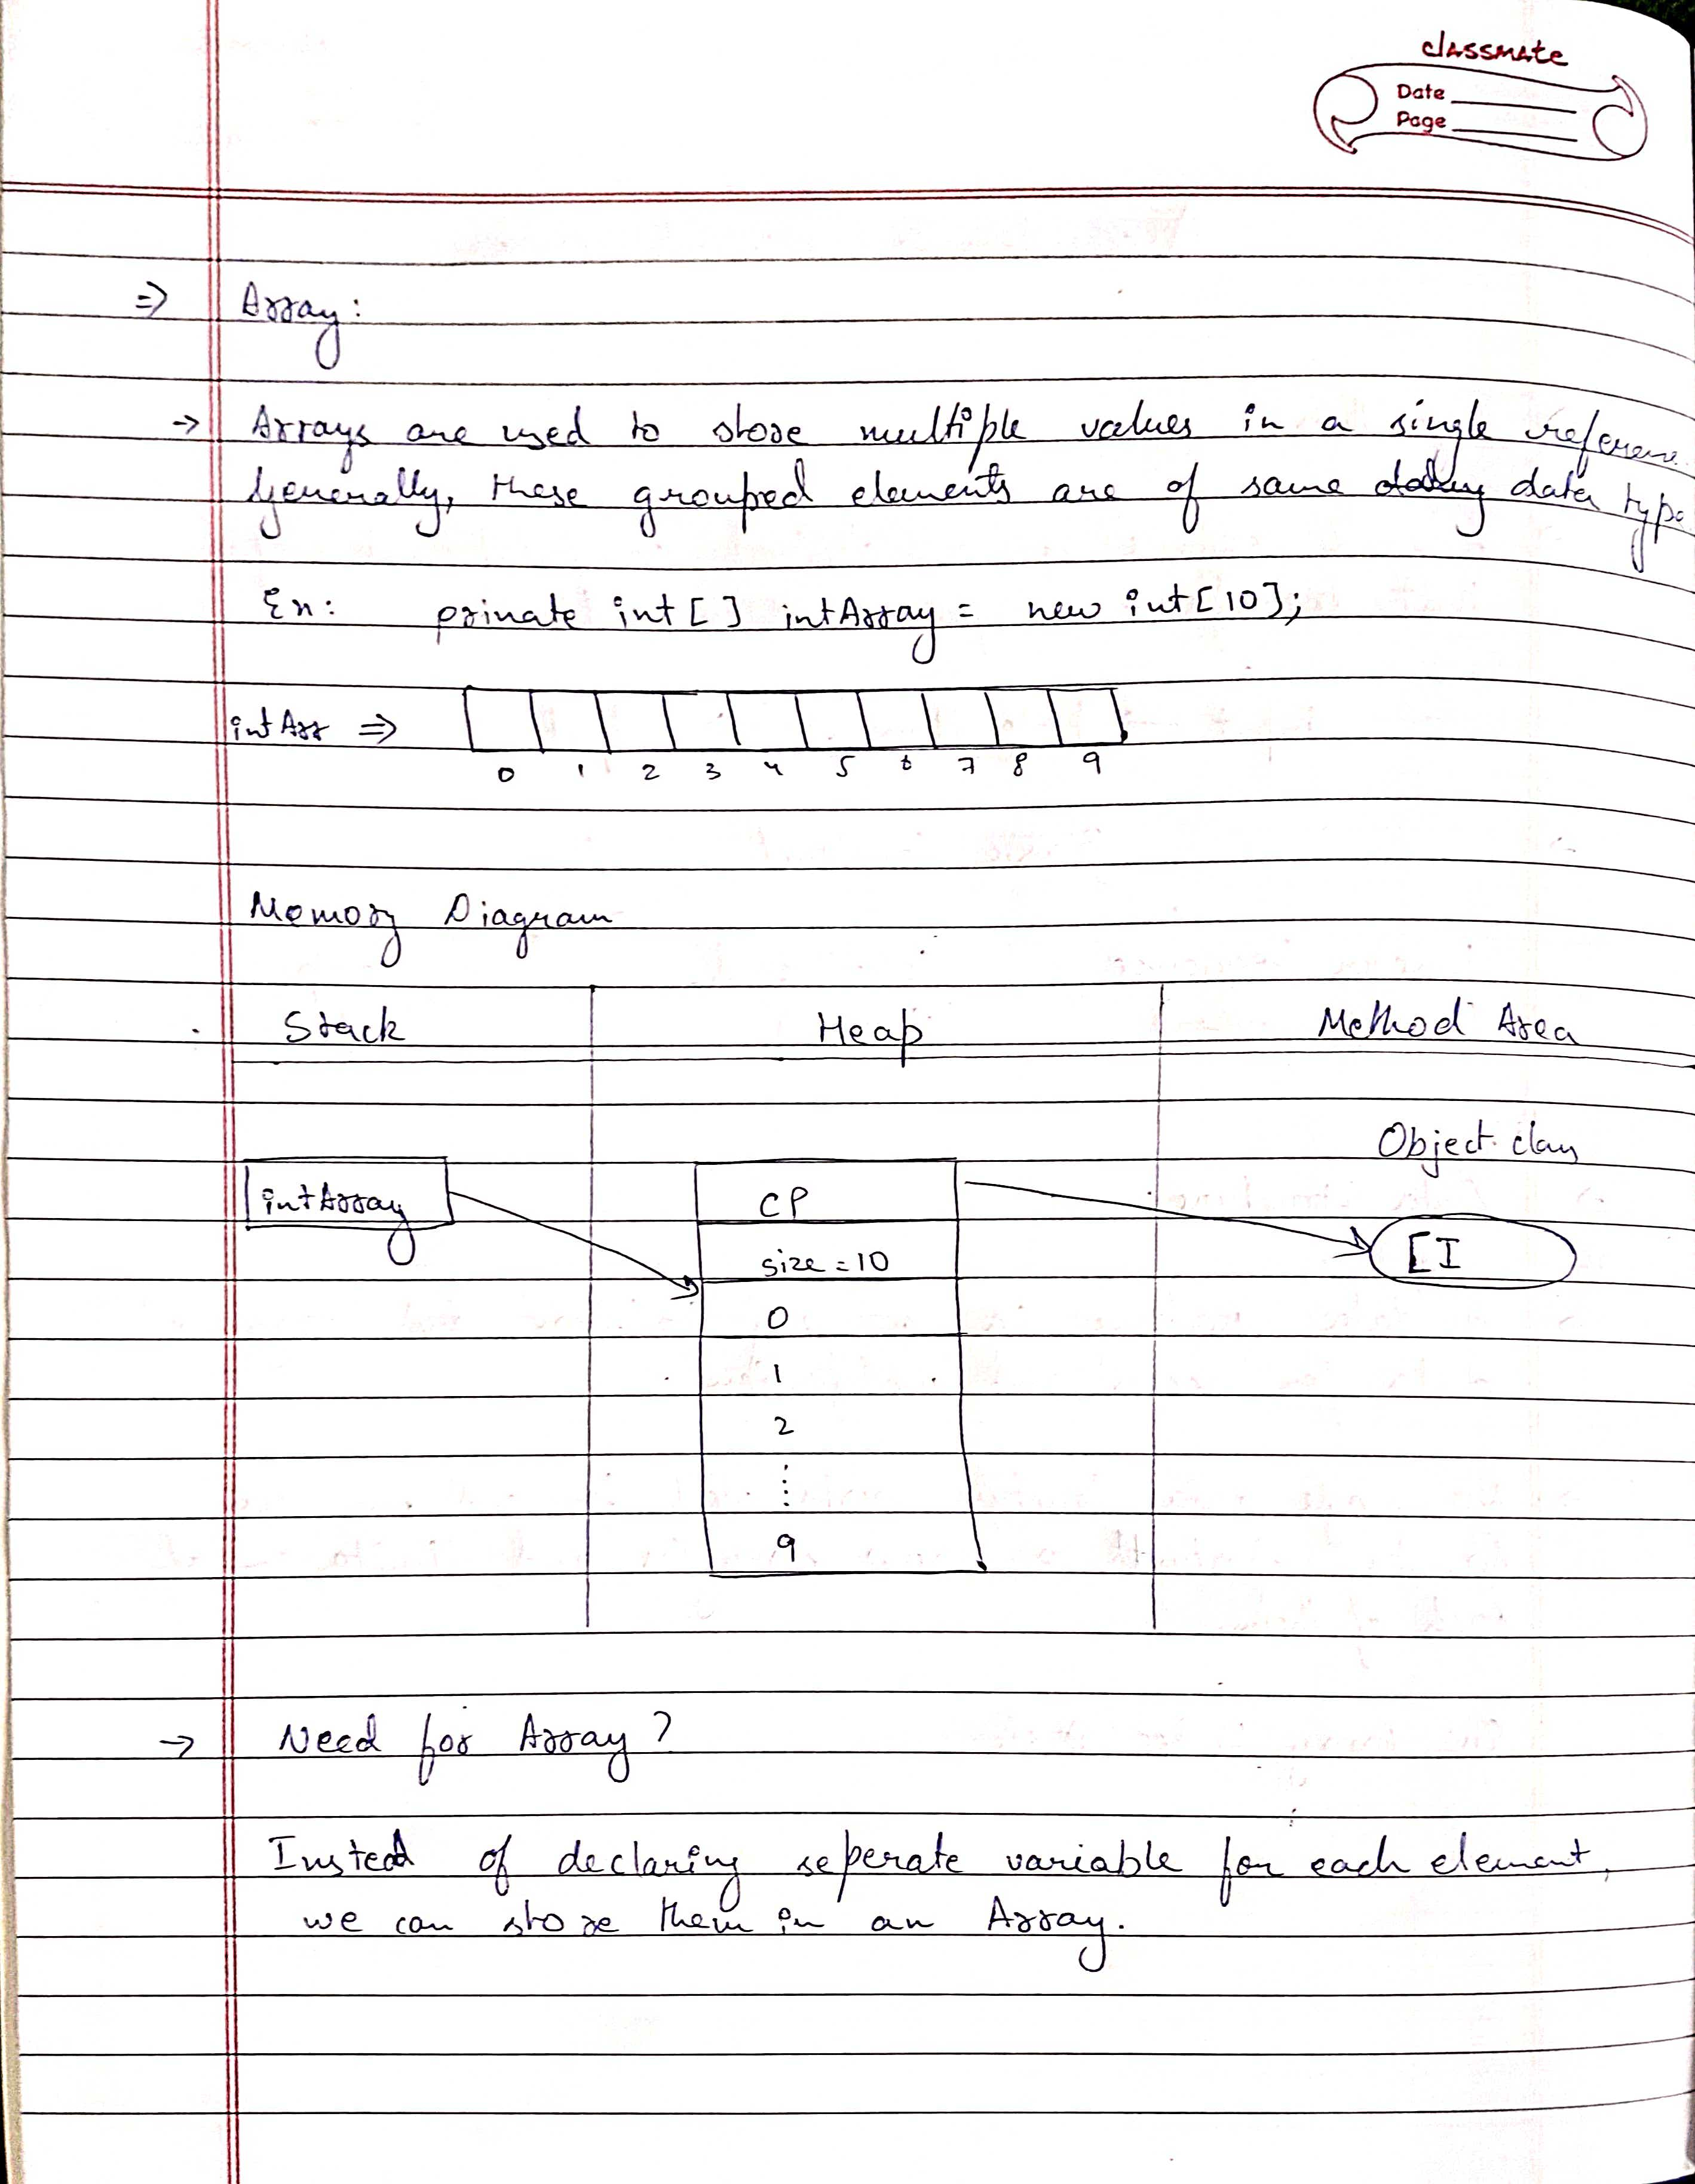 classmate
Date
Page
⇒ Array:
→ Arrays are used to store multiple values in a single
Generally, these grouped elements are of same data type
Ex: private int[] intArray = new int[10];
intArr ⇒
0 1 2 3 4 5 6 7 8 9
Memory Diagram
Stack Heap Method Area
Object class
intArray CP
[I
size = 10
0
1
2
⋮
9
→ Need for Array?
Instead of declaring seperate variable for each element,
we can store them in an Array.